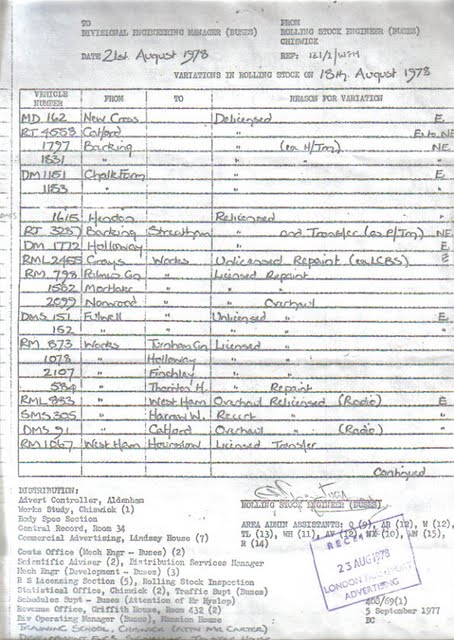 TO FROM
DIVISIONAL ENGINEERING MANAGER (BUSES) ROLLING STOCK ENGINEER (BUSES)
CHISWICK
DATE 21st August 1978 REF: 121/1/WFH
VARIATIONS IN ROLLING STOCK ON 18th August 1978
VEHICLE NUMBER FROM TO REASON FOR VARIATION
MD 162 New Cross Delicensed E
RT 4558 Catford " E to NE
1797 Barking " (ex H/Tm) NE
1831 " " " "
DM 1151 Chalk Farm " E
1153 " " "
1615 Hendon Relicensed "
RT 3287 Barking Streatham " and Transfer (as P/Tm) NE
DM 1772 Holloway " E
RML 2455 Grays Works Unlicensed Repaint (ex LCBS)
RM 798 Palmers Gn " Licensed Repaint
1562 Mortlake " " "
2099 Norwood " " Overhaul
DMS 151 Fulwell " Unlicensed " E
152 " " " " "
RM 873 Works Turnham Gn Licensed "
1078 " Holloway " "
2107 " Finchley " "
584 " Thornton H. " Repaint
RML 883 " West Ham Overhaul Relicensed (Radio) E
SMS 305 " Harrow W. Recert " "
DMS 91 " Catford Overhaul " (Radio) "
RM 1067 West Ham Hounslow Licensed Transfer
Continued
DISTRIBUTION:
Advert Controller, Aldenham
Works Study, Chiswick (1)
Body Spec Section
Central Record, Room 34
Commercial Advertising, Lindsey House (7)
ROLLING STOCK ENGINEER (BUSES)
AREA ADMIN ASSISTANTS: Q (9), AR (12), W (12),
TL (13), WH (11), AV (12), NX (10), WN (15),
H (14)
Costs Office (Mech Engr - Buses) (2)
Scientific Adviser (2), Distribution Services Manager
Mech Engr (Development - Buses) (3)
R S Licensing Section (5), Rolling Stock Inspection
Statistical Office, Chiswick (2), Traffic Supt (Buses)
Schedules Supt - Buses (Attention of Mr Hyslop)
Revenue Office, Griffith House, Room 432 (2)
Div Operating Manager (Buses), Mansion House
TRAINING SCHOOL, CHISWICK (ATTN MR. CARTER)
RECEIVED
23 AUG 1978
LONDON TRANSPORT
ADVERTISING
400/69(1)
9 September 1977
EC